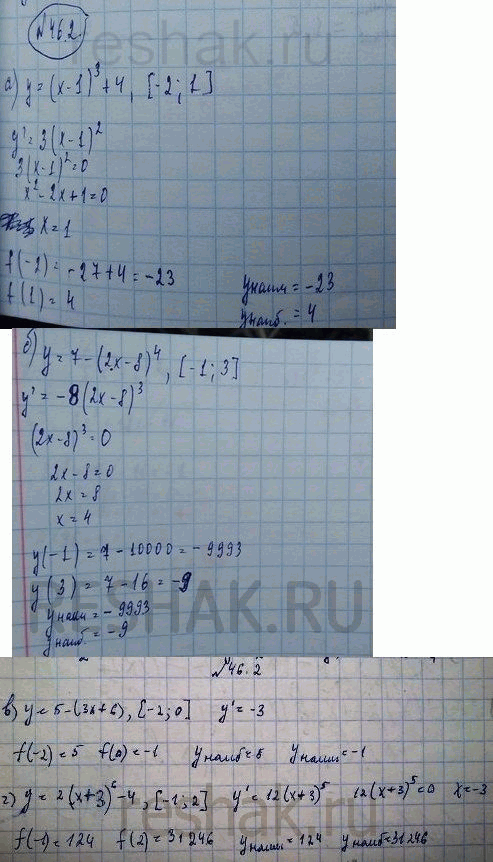 №46.2.
а) y = (x-1)³+4, [-2; 1]
y' = 3(x-1)²
3(x-1)²=0
x²-2x+1=0
x=1
f(-2) = -27+4 = -23
f(1) = 4
yнаим = -23
yнаиб. = 4
б) y = 7-(2x-8)⁴, [-1; 3]
y' = -8(2x-8)³
(2x-8)³=0
2x-8=0
2x=8
x=4
y(-1) = 7-10000 = -9993
y(3) = 7-16 = -9
yнаим = -9993
yнаиб. = -9
№46.2
в) y = 5-(3x+6), [-2; 0] y' = -3
f(-2)=5 f(0)=-1 yнаиб=5 yнаим=-1
г) y = 2(x+3)⁶-4, [-1; 2] y' = 12(x+3)⁵ 12(x+3)⁵=0 x=-3
f(-1)=124 f(2)=31246 yнаим=124 yнаиб=31246
reshak.ru
RESHAK.RU
reshak.ru